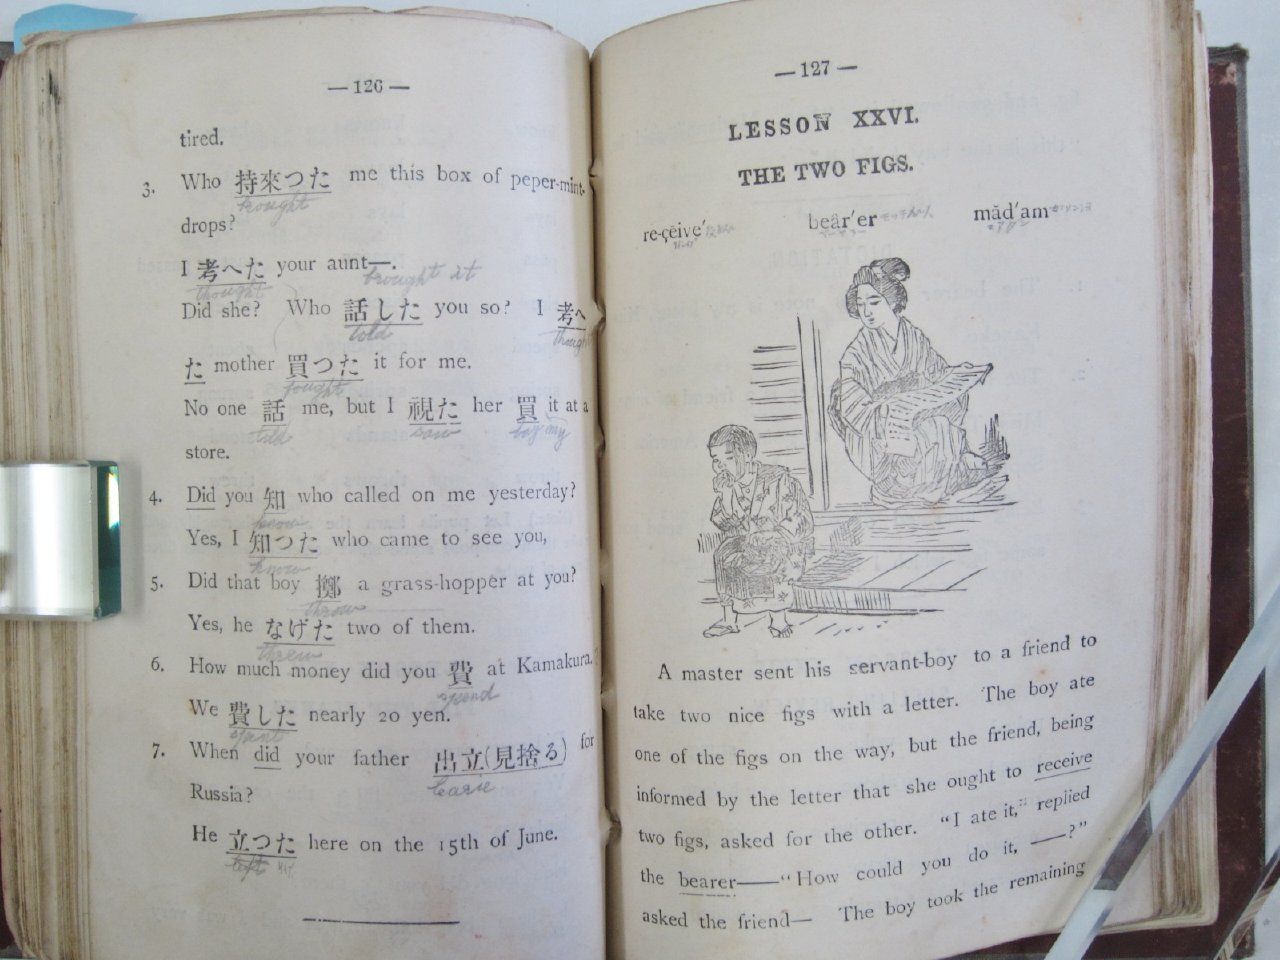 —126—
tired.
3. Who 持來つた me this box of peper-mint-
brought
drops?
I 考へた your aunt—.
thought brought it
Did she? Who 話した you so? I 考へ
told thought
た mother 買つた it for me.
No one 話 me, but I 視た her 買 it at a
told saw buy
store.
4. Did you 知 who called on me yesterday?
know
Yes, I 知つた who came to see you,
know
5. Did that boy 擲 a grass-hopper at you?
throw
Yes, he なげた two of them.
threw
6. How much money did you 費 at Kamakura.
spend
We 費した nearly 20 yen.
spent
7. When did your father 出立(見捨る) for
Russia?
He 立つた here on the 15th of June.
left
—127—
LESSON XXVI.
THE TWO FIGS.
re-çēive′ beâr′er măd′am
A master sent his servant-boy to a friend to
take two nice figs with a letter. The boy ate
one of the figs on the way, but the friend, being
informed by the letter that she ought to receive
two figs, asked for the other. “I ate it,” replied
the bearer——“How could you do it, ——?”
asked the friend— The boy took the remaining